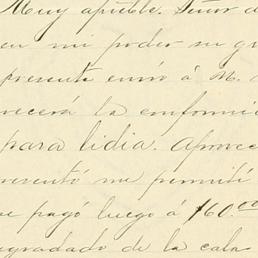 Muy apreble. Señor d
en mi poder su gr
presente envio á M.
recerá la conformi
para lidia. Aprovec
resentó me permiti
se pagó luego á $160.00
egradado de la cala